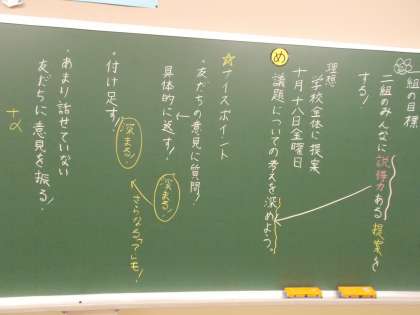 組の目標
二組のみんなに説得力ある提案を
する!
理想
学校全体に提案
十月十八日金曜日
め
議題についての考えを深めよう。
☆ナイスポイント
・友だちの意見に質問!
具体的に返す!
深まる!
さらなる「?」も!
・付け足す!
深まる!
・あまり話せていない
友だちに意見を振る!
+α